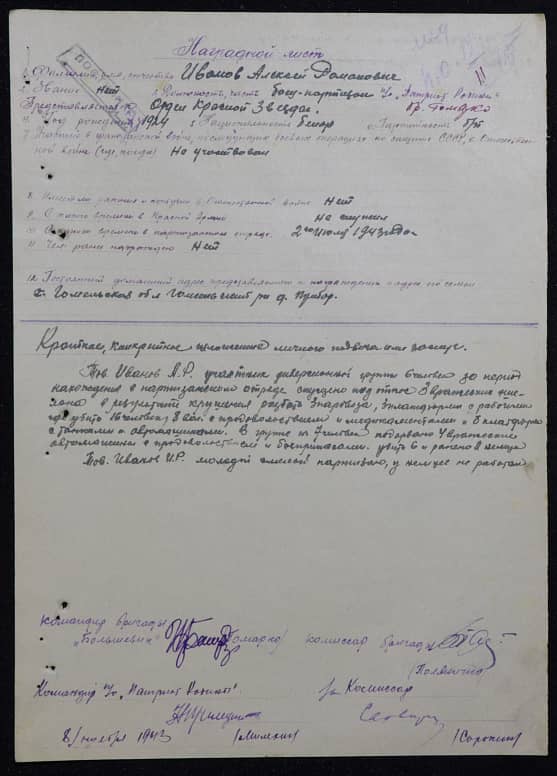 Наградной лист
1. Фамилия, имя, отчество Иванов Алексей Романович
2. Звание Нет 3. Должность, часть боец-партизан п/о „Патриот Родины"
Представляется к Орден Красной Звезды.
4. Год рождения 1924 5. Национальность белор 6. Партийность б/п
7. Участие в финской войне, последующих боевых операциях по защите СССР, в Отечествен-
ной войне (где, когда) Не участвовал
8. Имеет ли ранения и контузии в Отечественной войне Нет
9. С какого времени в Красной Армии не служил
10. С какого времени в партизанском отряде 2го июля 1943 года
11. Чем ранее награжден Нет
12. Постоянный домашний адрес представляемого к награждению и адрес его семьи
Гомельская обл Гомельский р-н д. Прибор.
Краткое, конкретное изложение личного подвига или заслуг.
Тов. Иванов А.Р. участник диверсионной группы будучи за период
нахождения в партизанском отряде спущено под откос 3 вражеских эше-
лона в результате крушения разбито 3 паровоза, платформы с рабочими
убито 16 человек, 8 ваг. с продовольствием и медикаментами и 8 платформ
с танками и автомашинами. В группе их участии подорвано 4 вражеских
автомашины с продовольствием и боеприпасами. убито 6 и ранено 8 немцев
Тов. Иванов И.Р. молодой смелый партизан, у немцев не работал
Командир бригады
„Большевик" комиссар бригады
Командир п/о „Патриот Родины". Комиссар
8/ноября 1943 /Сорокин/